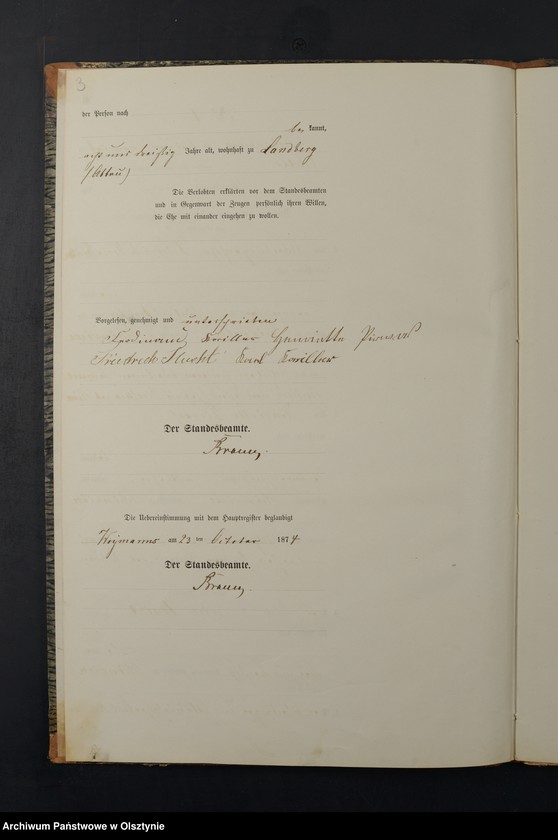 3
der Person nach
be kannt,
acht und dreißig Jahre alt, wohnhaft zu Landsberg
Die Verlobten erklärten vor dem Standesbeamten
und in Gegenwart der Zeugen persönlich ihren Willen,
die Ehe mit einander eingehen zu wollen.
Vorgelesen, genehmigt und unterschrieben
Ferdinand Henriette
Friedrich Karl
Der Standesbeamte.
Die Uebereinstimmung mit dem Hauptregister beglaubigt
am 23 ten October 1874
Der Standesbeamte.
Archiwum Państwowe w Olsztynie